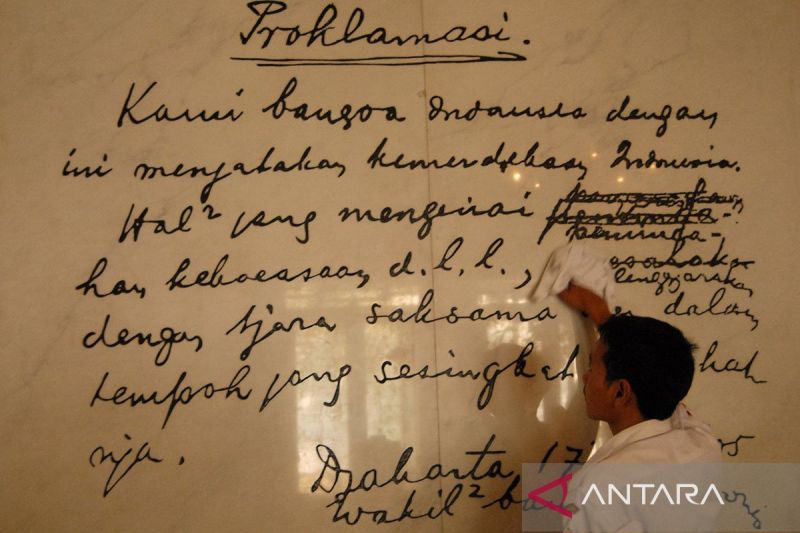 Proklamasi.
Kami bangsa Indonesia dengan
ini menjatakan kemerdekaan Indonesia.
Hal² jang mengenai
peminda-
han kekoeasaan d.l.l.,
dengan tjara saksama dalam
tempoh jang sesingkat
nja.
Djakarta 17
Wakil²
ANTARA